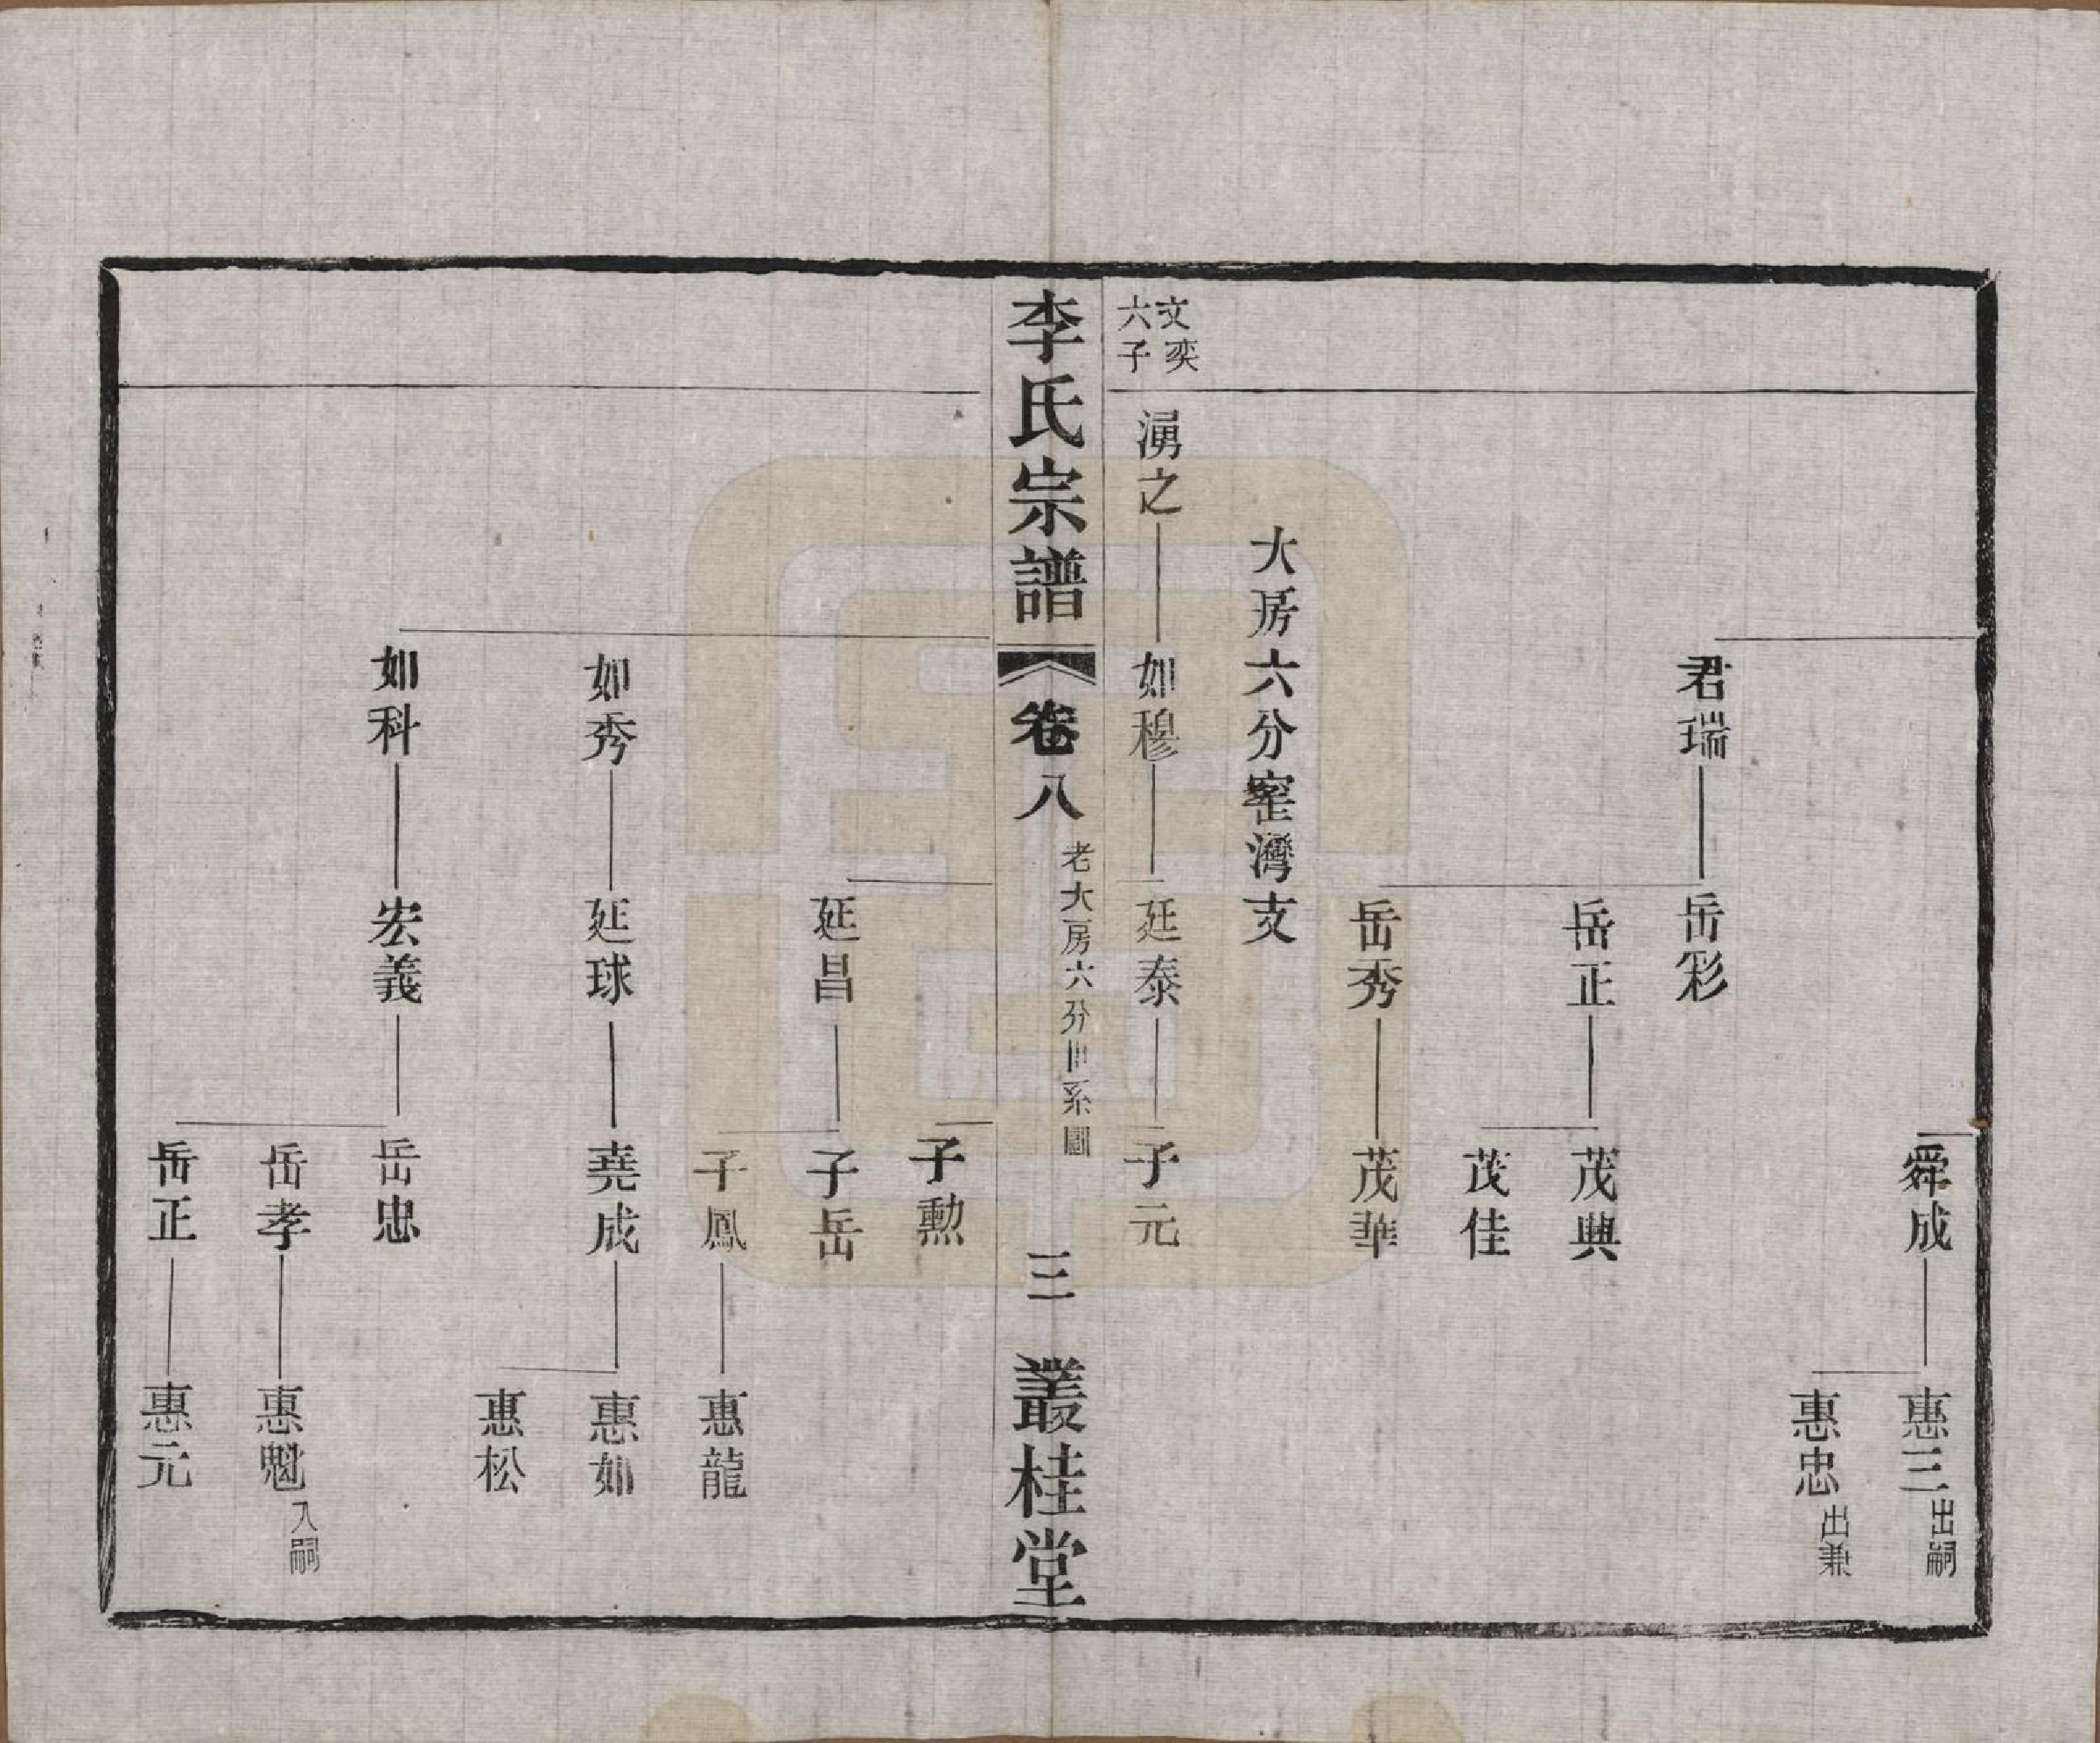 舜成
惠三出嗣
惠忠出兼
君瑞
岳彩
岳正
茂興
茂佳
岳秀
茂華
大房六分窰灣支
文奕六子
湧之
如穆
延泰
子元
李氏宗譜
卷八
老大房六分世系圖
三
叢桂堂
子勲
延昌
子岳
子鳳
惠龍
如秀
延球
堯成
惠如
惠松
如科
宏義
岳忠
岳孝
惠魁入嗣
岳正
惠元